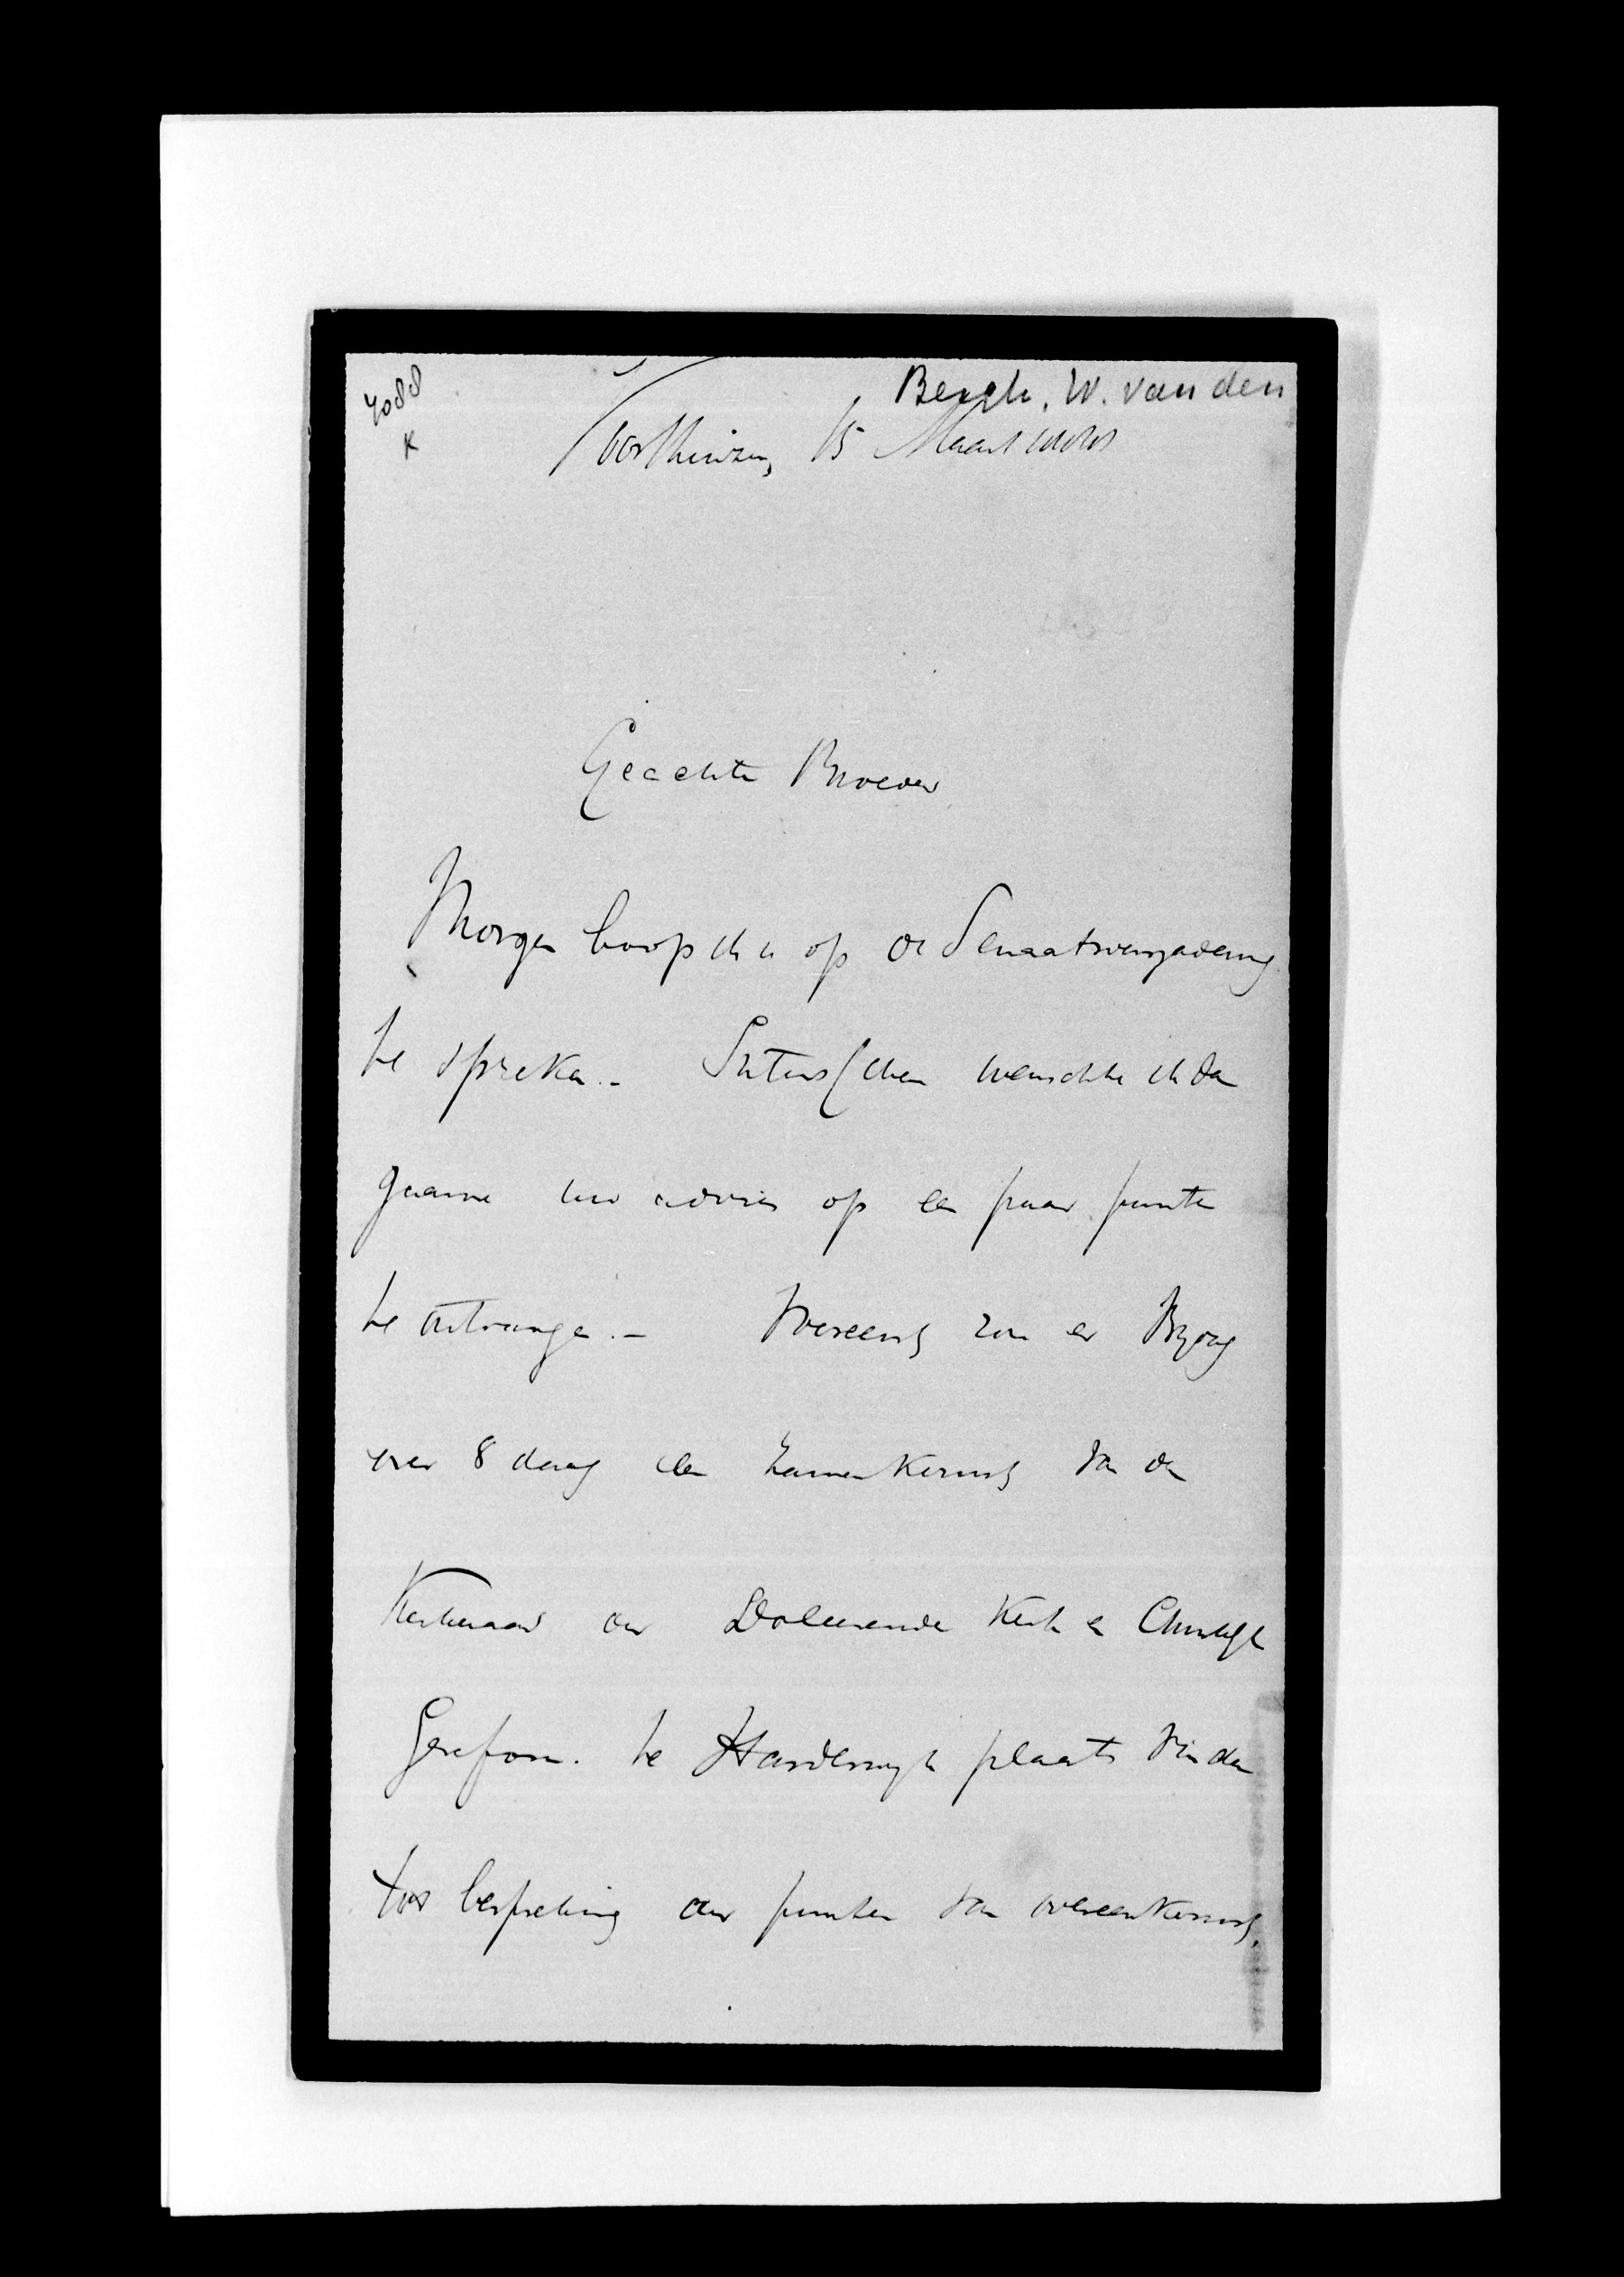 4088
K
Bergh, W. van den
Voorthuizen, 15 Maart 1888
Geachte Broeder
Morgen hoop ik u op de Senaatsvergadering
te spreken. - Intusschen wenschte ik dan
gaarne uw advies op een paar punten
te ontvangen. - Vooreerst zou er Vrijdag
over 8 dagen een zamenkomst van den
Kerkeraad der Doleerende Kerk en Christelijk
Gereform. te Harderwijk plaats vinden
tot bespreking der punten van overeenkomst.